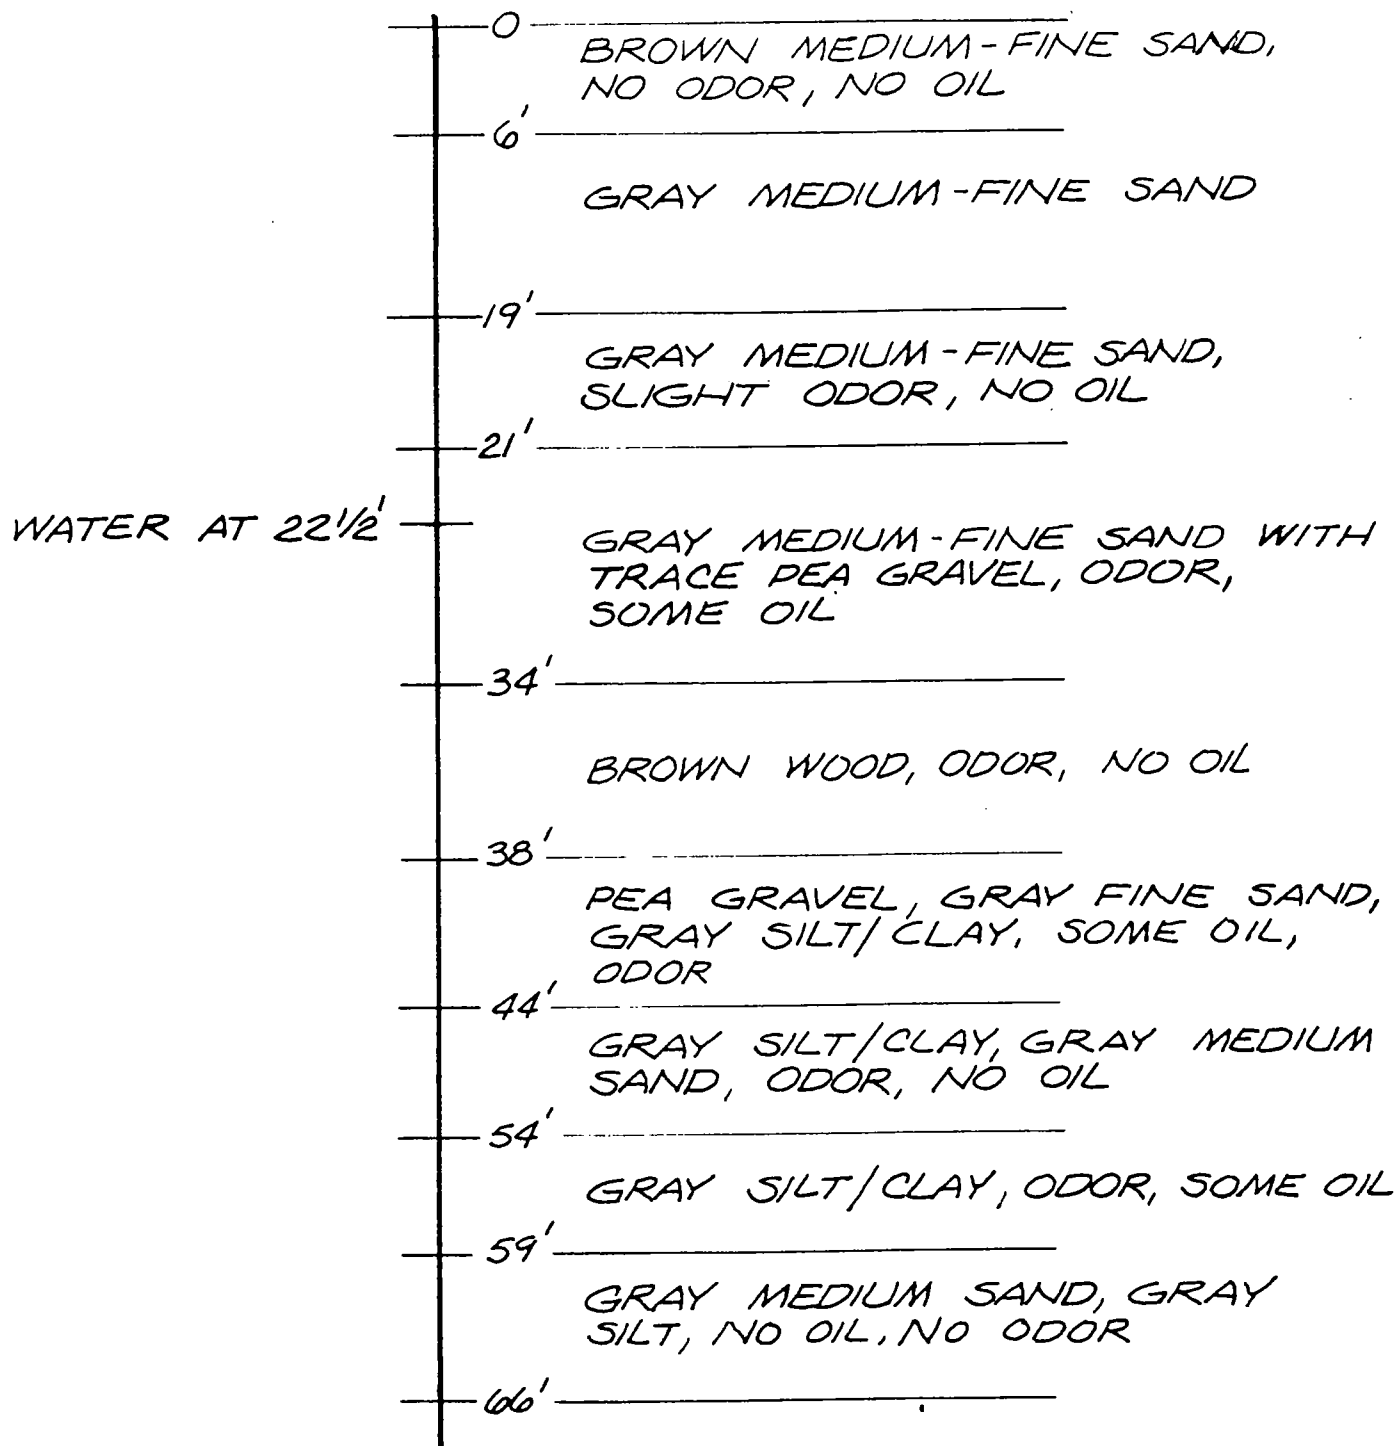 0
BROWN MEDIUM-FINE SAND,
NO ODOR, NO OIL
6'
GRAY MEDIUM-FINE SAND
19'
GRAY MEDIUM-FINE SAND,
SLIGHT ODOR, NO OIL
21'
WATER AT 22 1/2'
GRAY MEDIUM-FINE SAND WITH
TRACE PEA GRAVEL, ODOR,
SOME OIL
34'
BROWN WOOD, ODOR, NO OIL
38'
PEA GRAVEL, GRAY FINE SAND,
GRAY SILT/CLAY, SOME OIL,
ODOR
44'
GRAY SILT/CLAY, GRAY MEDIUM
SAND, ODOR, NO OIL
54'
GRAY SILT/CLAY, ODOR, SOME OIL
59'
GRAY MEDIUM SAND, GRAY
SILT, NO OIL, NO ODOR
66'